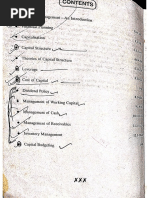 CONTENTS
Management - An Introduction
Financial Planning
Capitalisation
Capital Structure
Theories of Capital Structure
Leverage
Cost of Capital
Dividend Policy
Management of Working Capital
Management of Cash
Management of Receivables
Inventory Management
Capital Budgeting
XXX